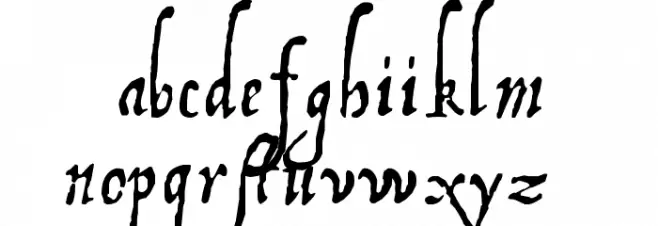 abcdefghiiklm
nopqrſtuvwxyz